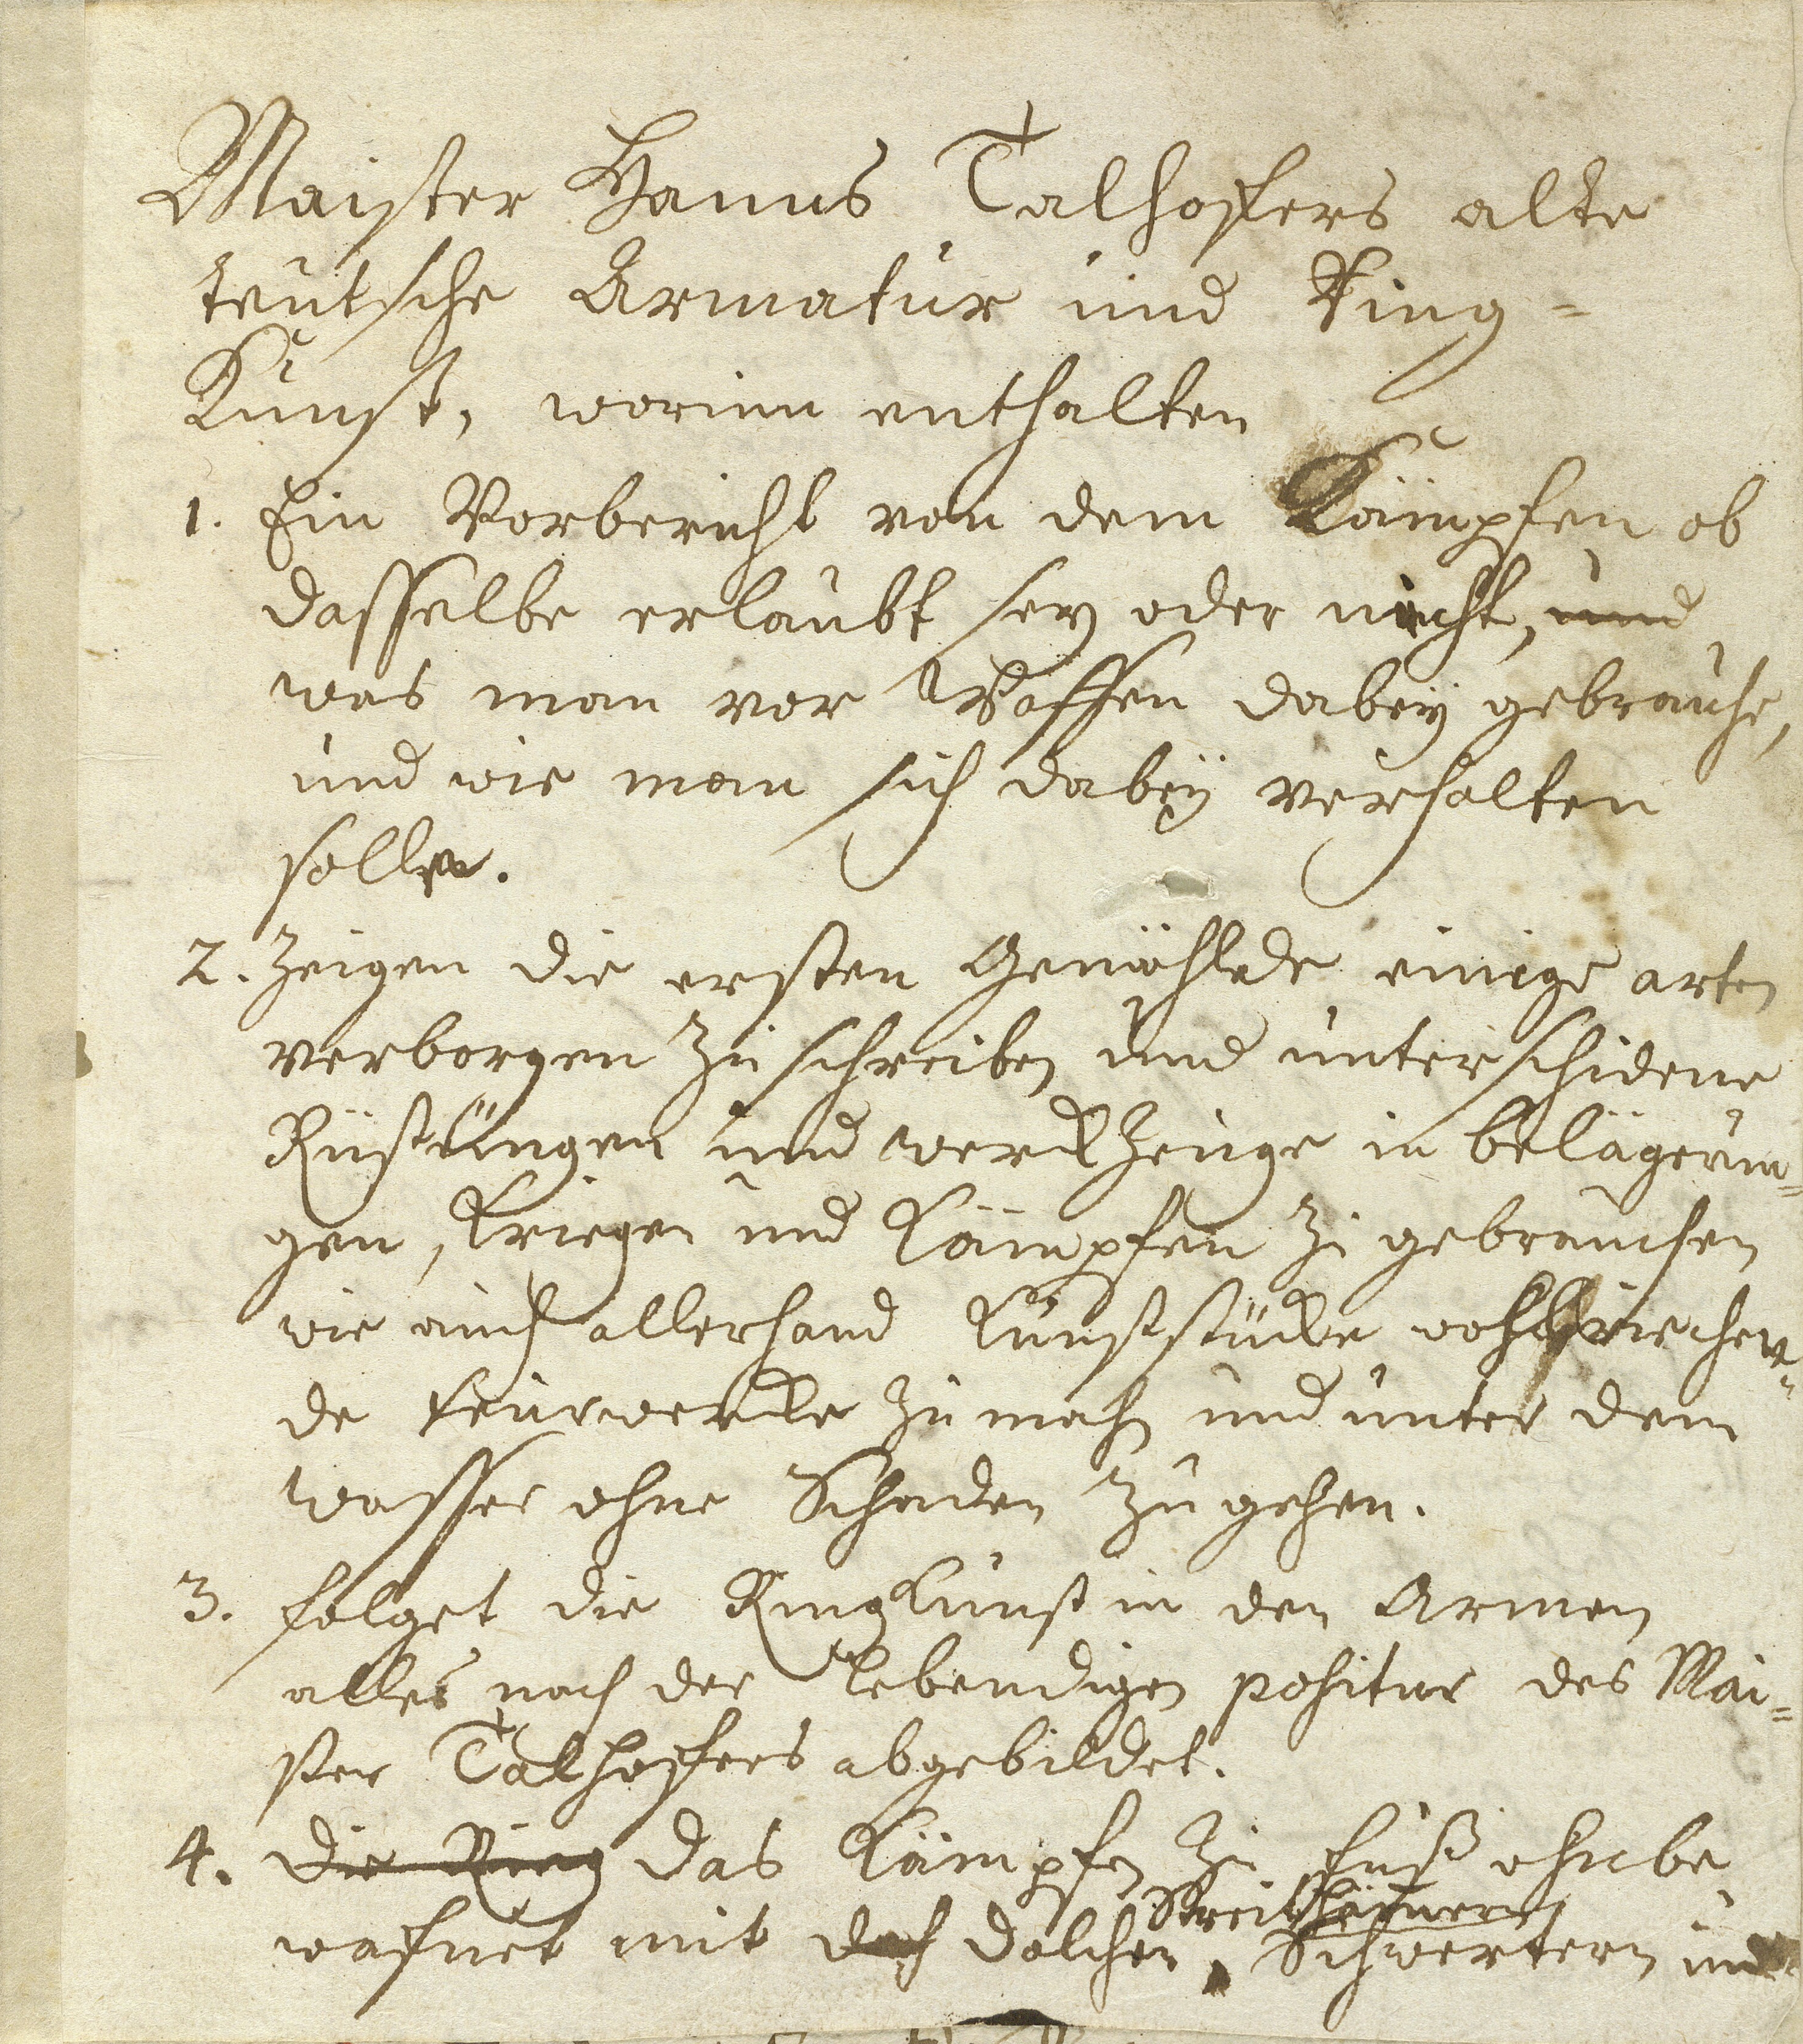 Maister Hanns Talhoffers alte
teutsche Armatur und Ring=
Kunst, worinn enthalten
1. Ein Vorbericht von dem Kämpfen ob
dasselbe erlaubt sey oder nicht, und
was man vor Waffen dabey gebrauche,
und wie man sich dabey verhalten
solle.
2. Zeigen die ersten Gemählde einige arten
verborgen zu schreiben und unterschidene
Rüstungen und werckzeuge in belägerun=
gen, kriegen und kämpfen zu gebrauchen
wie auch allerhand kunststücke wohlriechen=
de feurwercke zu mach und unter dem
wasser ohne Schaden zu gehen.
3. folget die Ringkunst in den Armen
alles nach der lebendigen positur des Mai=
ster Talhoffers abgebildet.
4. die Ring das kämpfen zu fuß ohnbe
wafnet mit doch dolchen, Streithämern
Schwertern und